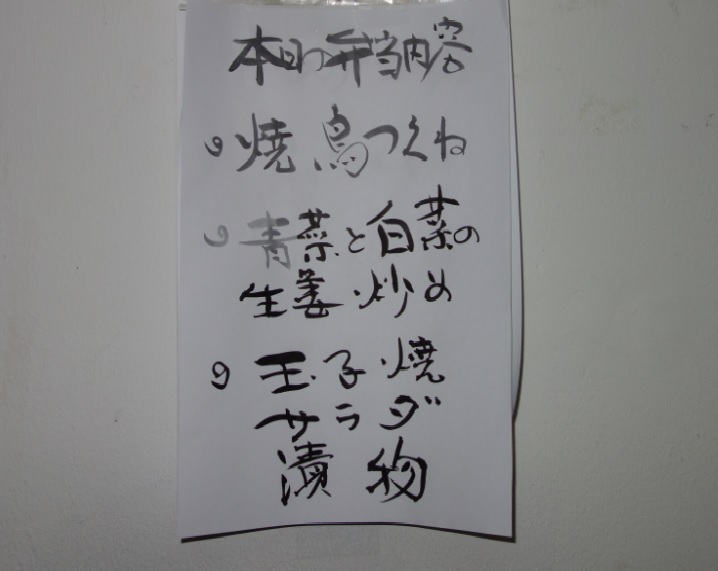 本日の弁当内容
焼鳥つくね
青菜と白菜の
生姜炒め
玉子焼
サラダ
漬物